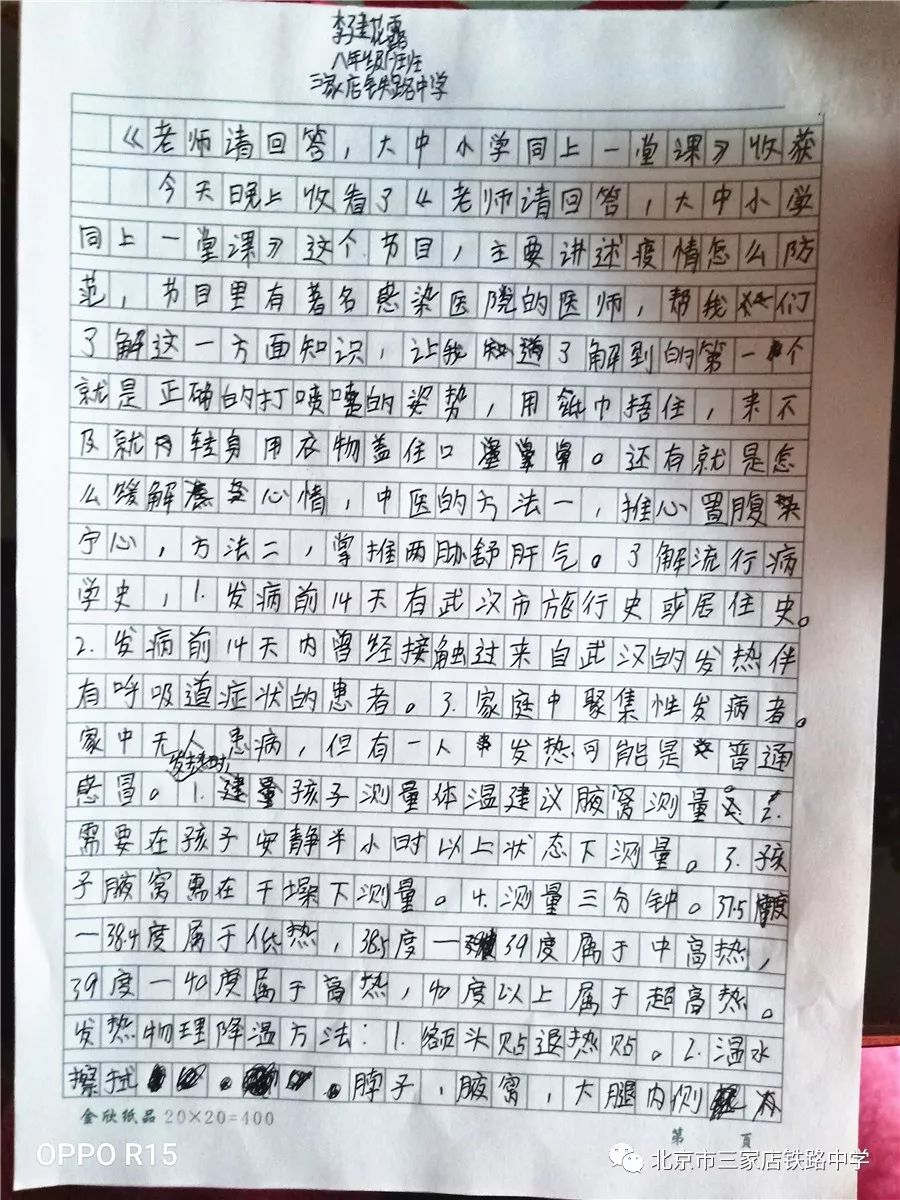 李建花露
八年级1班
三家店铁路中学
《老师请回答，大中小学同上一堂课》收获
今天晚上收看了《老师请回答，大中小学
同上一堂课》这个节目，主要讲述疫情怎么防
范，节目里有著名感染医院的医师，帮我们
了解这一方面知识，让我知道了解到的第一个
就是正确的打喷嚏的姿势，用纸巾捂住，来不
及就转身用衣物盖住口鼻。还有就是怎
么缓解心情，中医的方法一，推心置腹
宁心，方法二，掌推两胁舒肝气。了解流行病
学史，1.发病前14天有武汉市旅行史或居住史。
2.发病前14天内曾经接触过来自武汉的发热伴
有呼吸道症状的患者。3.家庭中聚集性发病者。
家中无人患病，但有一人发热可能是普通
感冒。发热时，1.孩子测量体温建议腋窝测量。2.
需要在孩子安静半小时以上状态下测量。3.孩
子腋窝需在干燥下测量。4.测量三分钟。37.5度
—38.4度属于低热，38.5度—39度属于中高热，
39度—40度属于高热，40度以上属于超高热。
发热物理降温方法：1.额头贴退热贴。2.温水
擦拭脖子，腋窝，大腿内侧
金欣纸品 20×20=400
第 页
OPPO R15
北京市三家店铁路中学